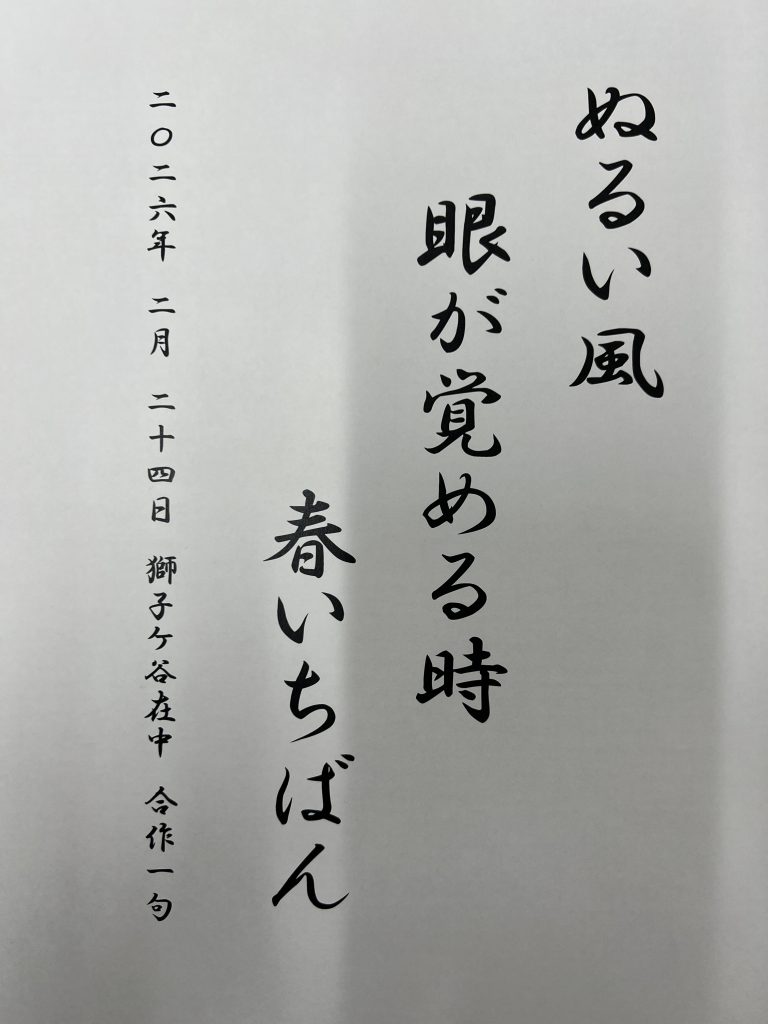 ぬるい風
眼が覚める時
春いちばん
二〇二六年 二月 二十四日 獅子ケ谷在中 合作一句